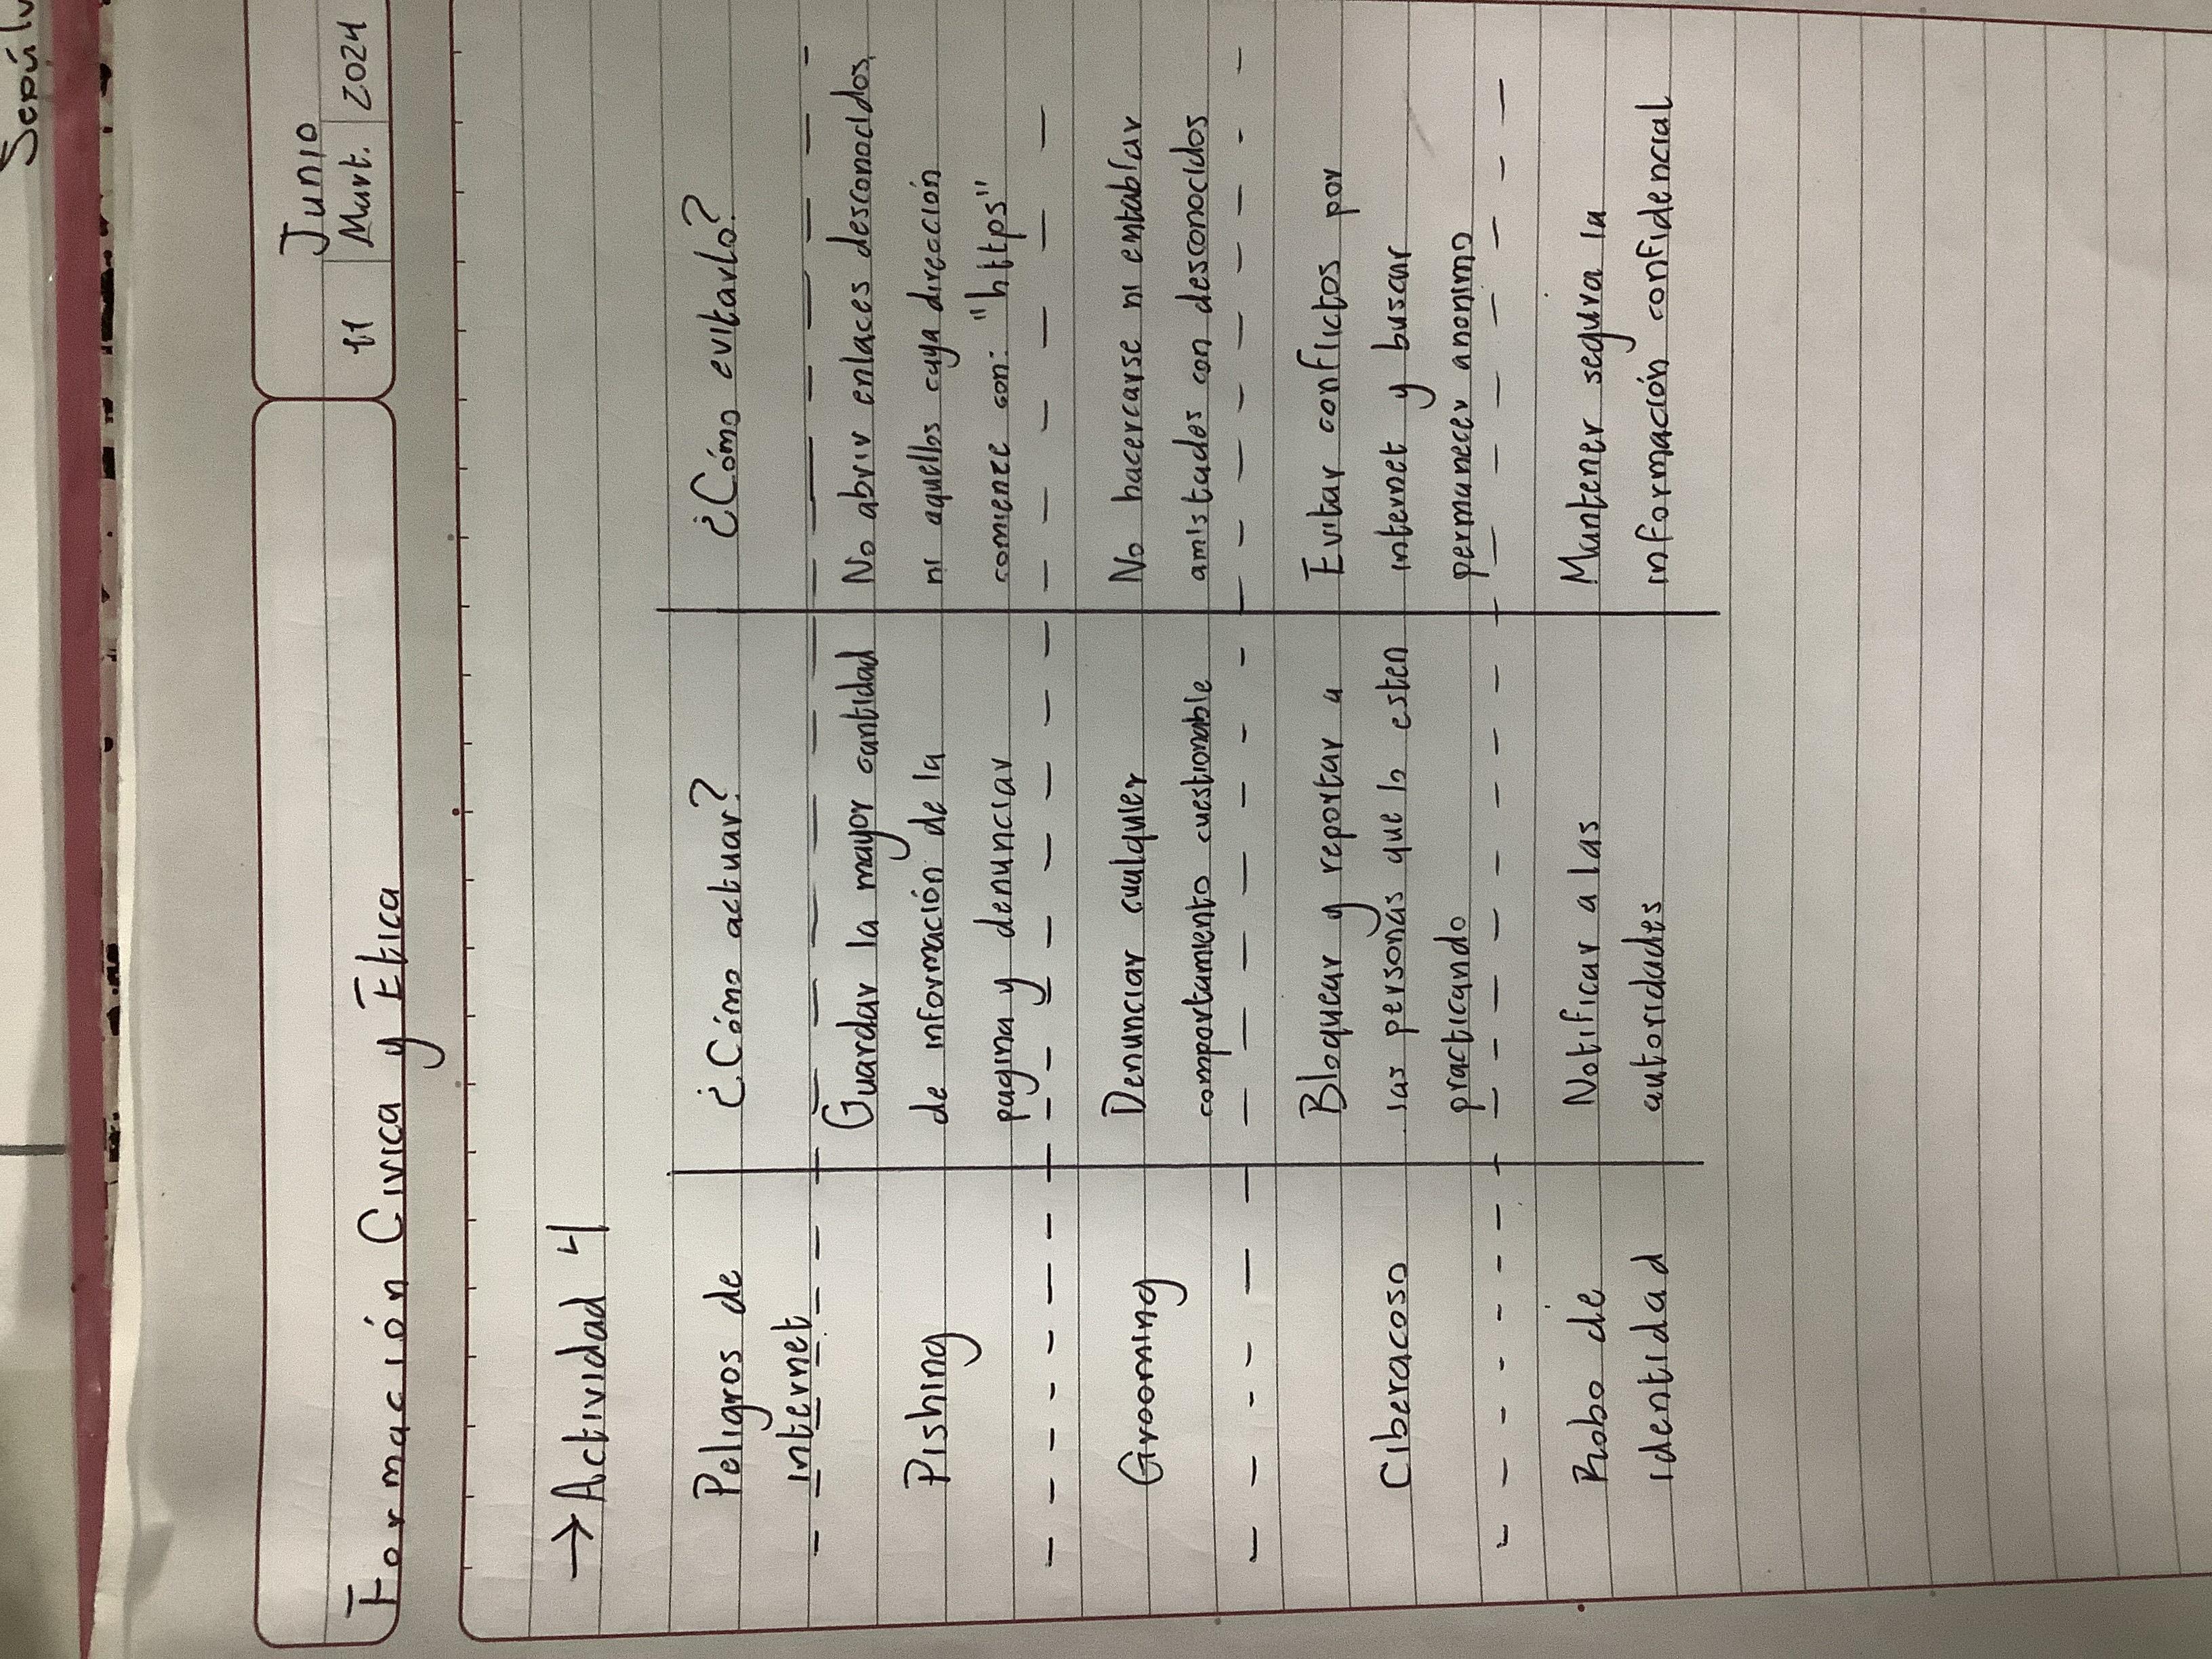 Junio
Formación Civica y Etica 11 Mart. 2024
→ Actividad 4
Peligros de ¿Cómo actuar? ¿Cómo evitarlo?
internet
Guardar la mayor cantidad No abrir enlaces desconocidos,
Pishing de información de la ni aquellos cuya dirección
pagina y denunciar comienze con: "https"
Grooming Denunciar cualquier No hacercarse ni entablar
comportamiento cuestionable amistades con desconocidos
Bloquear y reportar a Evitar conflictos por
Ciberacoso las personas que lo esten internet y buscar
practicando permanecer anonimo
Robo de Notificar a las Mantener segura la
identidad autoridades información confidencial